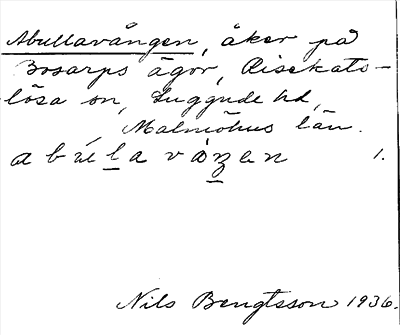 Abullavången, åker på
Bosarps ägor, Risekats-
lösa sn, Luggude hd,
Malmöhus län.
abúlavåŋen 1.
Nils Bengtsson 1936.